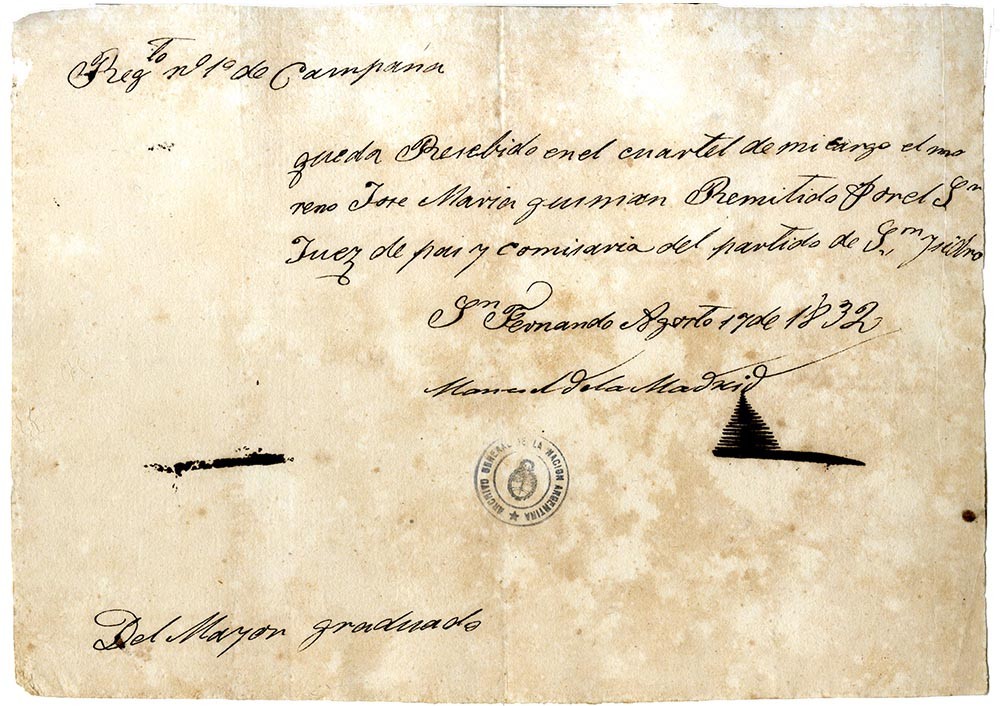 Regto no 1o de Campaña
queda Resebido en el cuartel de mi cargo el mo
reno Jose Maria gusman Remitido Por el Sr
Juez de pas y comisaria del partido de Sn Ysidro
Sn Fernando Agosto 17 de 1832
Manuel de la Madrid
ARCHIVO GENERAL DE LA NACION ARGENTINA
Del Mayor graduado